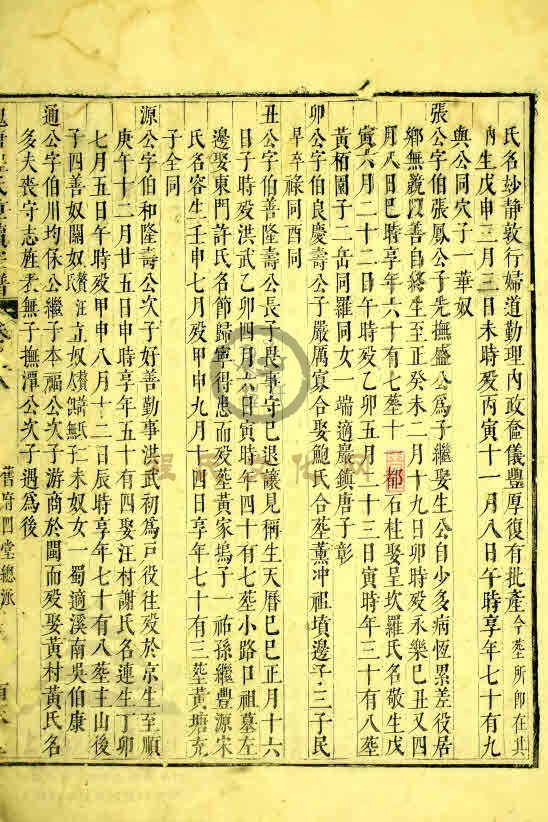 氏名妙靜敦行婦道勤理內政奩儀豐厚復有批產今塟所卽在其
內生戊申三月三日未時歿丙寅十一月八日午時享年七十有九
與公同穴子一華奴
張公字伯張鳳公子先撫盛公為子繼娶生公自少多病恆累差役居
鄉無競以善自終生至正癸未二月十九日卯時歿永樂己丑又四
月八日巳時享年六十有七塟十一都石桂娶呈坎羅氏名敬生戊
寅六月二十二日午時歿乙卯五月二十三日寅時年三十有八塟
黃栢園子二岳同羅同女一端適巖鎮唐子彰
卯公字伯良慶壽公子嚴厲寡合娶鮑氏合塟薰冲祖墳邊子三子民
早卒祿同酉同
丑公字伯善隆壽公長子畏事守己退讓見稱生天曆己巳正月十六
日子時歿洪武乙卯四月六日寅時年四十有七塟小路口祖墓左
邊娶東門許氏名節歸寧得患而歿塟黃家塢子一祐孫繼豐源宋
氏名容生壬申七月歿甲申九月十四日享年七十有三塟黃塘充
子全同
源公字伯和隆壽公次子好善勤事洪武初為戶役往歿於京生至順
庚午十二月廿五日申時享年五十有四娶汪村謝氏名連生丁卯
七月五日午時歿甲申八月十二日辰時享年七十有八塟主山後
子四善奴關奴贅汪氏立奴贅 氏未奴女一蜀適溪南吳伯康
通公字伯川均保公繼子本福公次子游商於閩而歿娶黃村黃氏名
多夫喪守志旌表無子撫潭公次子遇為後
舊府四堂總派